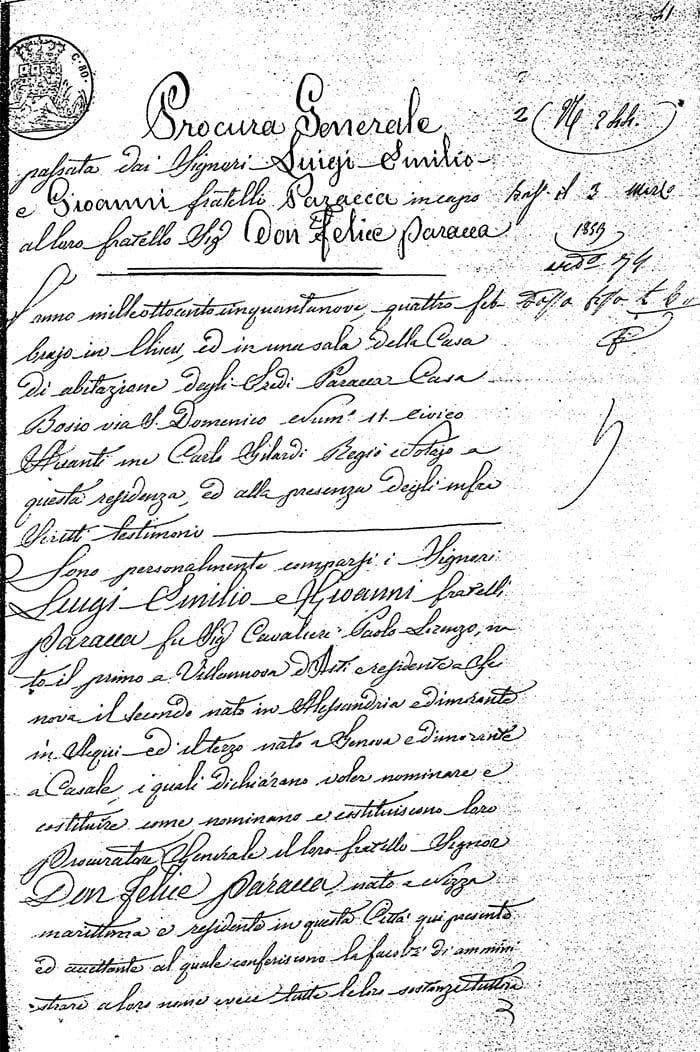 41
C. 80.
Procura Generale
passata dai Signori Luigi Emilio
e Gioanni fratelli Paracca in capo
al loro fratello Sig Don Felice Paracca
2 N 244.
Pass. il 3 Marzo
1859
L'anno milleottocentocinquantanove, quattro feb
brajo in Chieri, ed in una sala della Casa
di abitazione degli Eredi Paracca Casa
Bosio via S. Domenico Num° 11 civico
Avanti me Carlo Gilardi Regio Notajo a
questa residenza, ed alla presenza degli infra
scritti testimoni
Sono personalmente comparsi i Signori
Luigi Emilio e Gioanni fratelli
Paracca fu Sig Cavaliere Paolo Lorenzo, na
to il primo a Villanuova d'Asti e residente a Ge
nova il secondo nato in Alessandria e dimorante
in Acqui ed il terzo nato a Genova e dimorante
a Casale, i quali dichiarano voler nominare e
costituire come nominano e costituiscono loro
Procuratore Generale il loro fratello Signor
Don Felice Paracca nato a Nizza
marittima e residente in questa Città qui presente
ed accettante al quale conferiscono la facoltà di ammini
strare a loro nome e vece tutte le loro sostanze tuttora